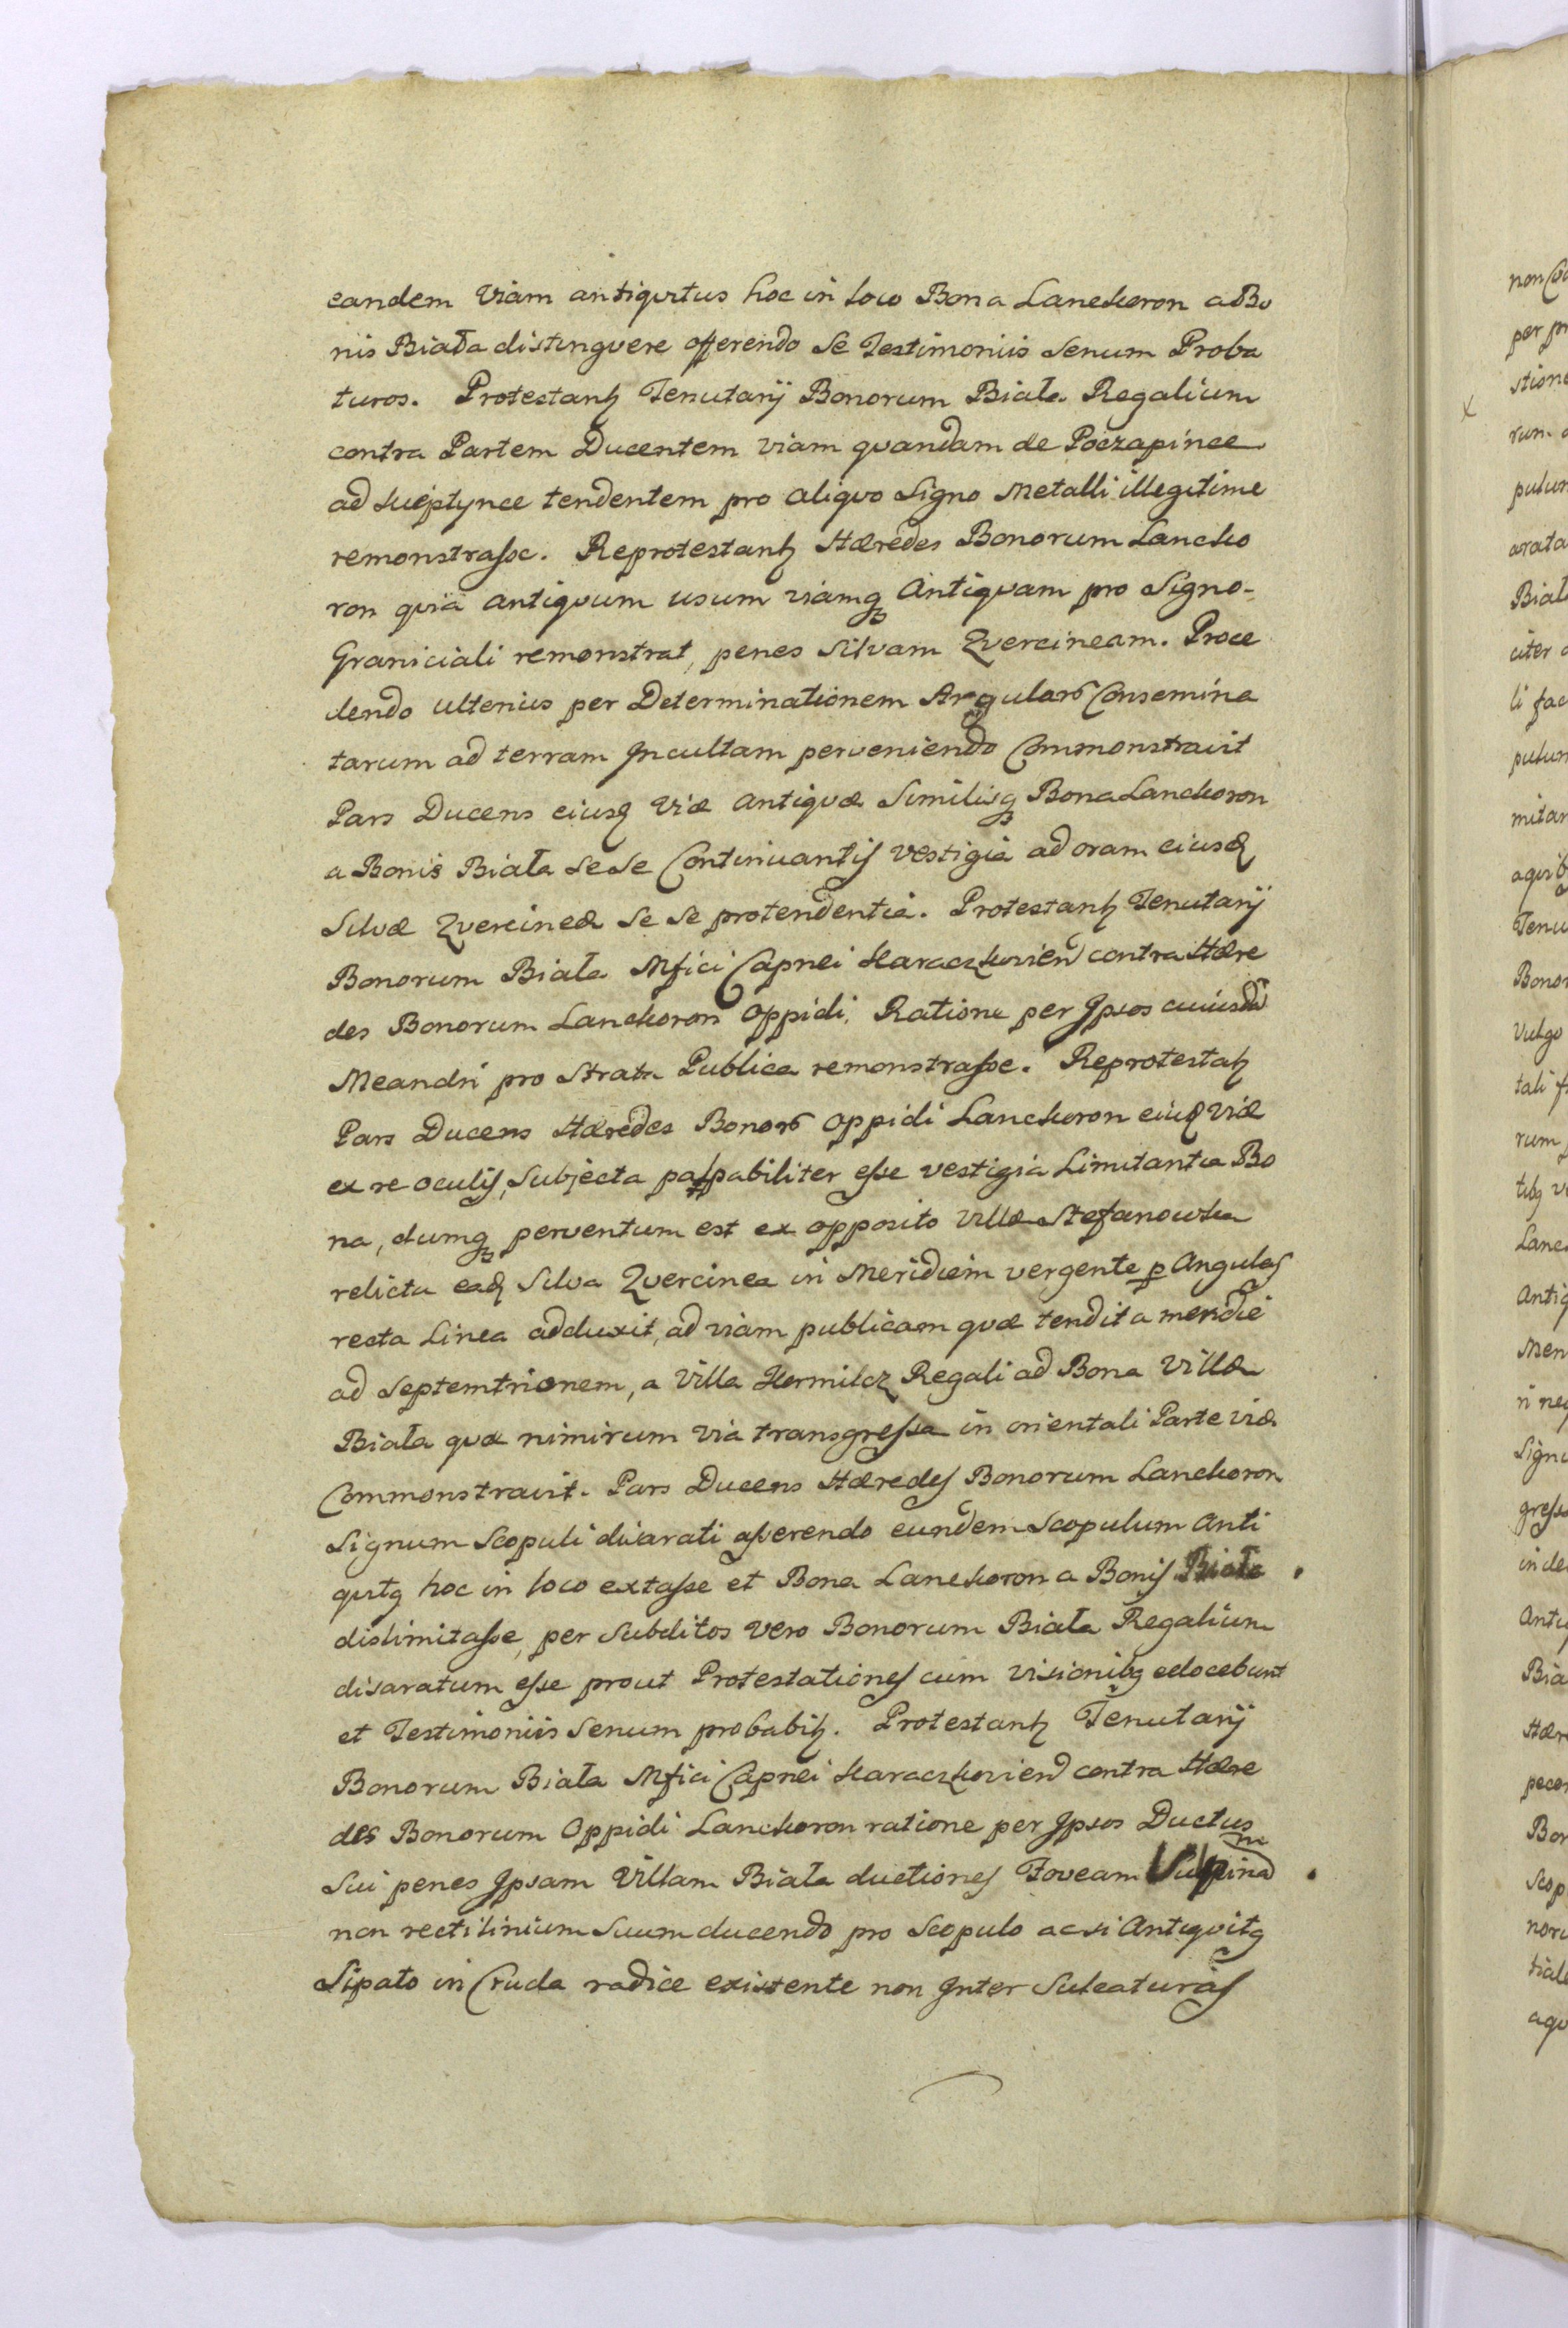 eandem Viam antiqvitus hoc in loco Bona Lanckoron a Bo
nis Biała distinguere offerendo se Testimoniis Senum Proba
turos. Protestantꝫ Tenutarÿ Bonorum Biała Regalium
contra Partem Ducentem viam qvandam de Poczapince
ad tendentem pro aliqvo Signo Metalli illegitime
remonstraſse. Reprotestantꝫ Hæredes Bonorum Lancko
ron qvia antiqvum usum viamqꝫ Antiqvam pro Signo
Graniciali remonstrat, penes Silvam Qvercineam. Proce
dendo ulterius per Determinationem Consemina
tarum ad terram Incultam perveniendo Commonstravit
Pars Ducens eiusd Viæ antiqvæ Similisqꝫ Bona Lanckoron
a Bonis Biała Se Se Continuantis vestigia ad oram eiusd
Silvæ Qvercineæ Se Se protendentia. Protestantꝫ Tenutarÿ
Bonorum Biała Mfici Capnei Karaczkovien contra Hære
des Bonorum Lanckoron Oppidi, Ratione per Ipsos cuiusdā
Meandri pro Strata Publica remonstraſse. Reprotestatꝫ
Pars Ducens Hæredes Bonorꝭ Oppidi Lanckoron eiusd Viæ
ex re oculis, Subjecta palpabiliter eſse vestigia Limitantia Bo
na, dumqꝫ perventum est ex opposito Villæ Stefanowka
relicta ead Silva Qvercinea in Meridiem vergente p Angulos
recta Linea adduxit, ad viam publicam qvæ tendit a meridie
ad Septemtrionem, a Villa Hermilcz Regali ad Bona Villæ
Biała qvæ nimirum via transgreſsa in orientali Parte viæ
Commonstravit. Pars Ducens Hæredes Bonorum Lanckoron
Signum Scopuli disarati aſserendo eundem Scopulum Anti
qvitꝫ hoc in loco extaſse et Bona Lanckoron a Bonis Biała
dislimitaſse, per Subditos vero Bonorum Biała Regalium
disaratum eſse prout Protestationes cum visionibꝫ edocebunt
et Testimoniis Senum probabitꝫ. Protestantꝫ Tenutarÿ
Bonorum Biała Mfici Capnei Karaczkovien contra Hære
des Bonorum Oppidi Lanckoron ratione per Ipsos Ductus
Sui penes Ipsam Villam Biała ductiones Foveam Vulpinam
non rectilinium Suum ducendo pro Scopulo acsi Antiqvitꝫ
Sipato in Cruda radice existente non Inter Sulcaturas